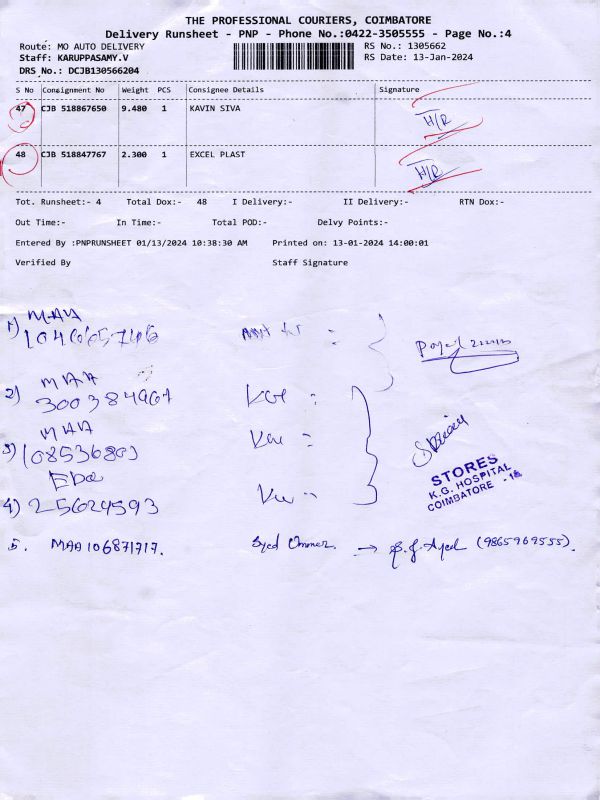 THE PROFESSIONAL COURIERS, COIMBATORE
Delivery Runsheet - PNP - Phone No.:0422-3505555 - Page No.:4
Route: MO AUTO DELIVERY RS No.: 1305662
Staff: KARUPPASAMY.V RS Date: 13-Jan-2024
DRS No.: DCJB130566204
S No Consignment No Weight PCS Consignee Details Signature
47 CJB 518867650 9.480 1 KAVIN SIVA H/R
48 CJB 518847767 2.300 1 EXCEL PLAST H/R
Tot. Runsheet:- 4 Total Dox:- 48 I Delivery:- II Delivery:- RTN Dox:-
Out Time:- In Time:- Total POD:- Delvy Points:-
Entered By :PNPRUNSHEET 01/13/2024 10:38:30 AM Printed on: 13-01-2024 14:00:01
Verified By Staff Signature
1) MAA
2) MAA
300384961
3) MAA
108536803
4)
25624593
STORES
K.G. HOSPITAL
COIMBATORE - 18
5. MAA106871717. Syed Ummer. → (9865969555).